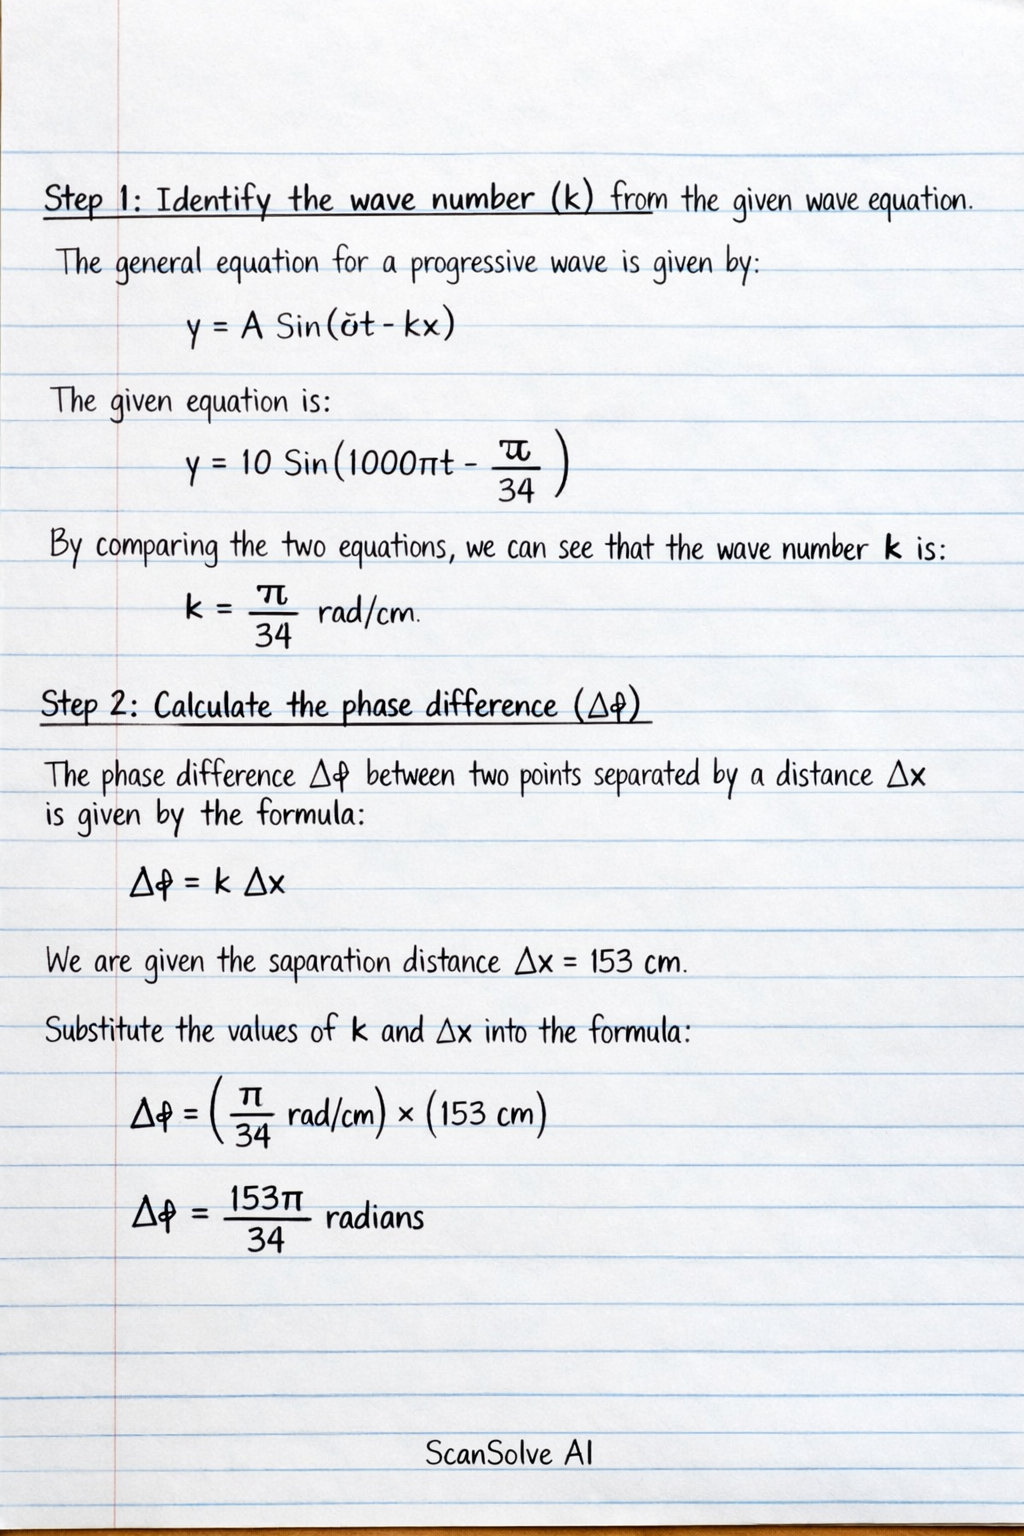 Step 1: Identify the wave number (k) from the given wave equation.
The general equation for a progressive wave is given by:
y = A Sin(ŏt - kx)
The given equation is:
y = 10 Sin(1000πt - π/34)
By comparing the two equations, we can see that the wave number k is:
k = π/34 rad/cm.
Step 2: Calculate the phase difference (Δφ)
The phase difference Δφ between two points separated by a distance Δx
is given by the formula:
Δφ = k Δx
We are given the saparation distance Δx = 153 cm.
Substitute the values of k and Δx into the formula:
Δφ = (π/34 rad/cm) × (153 cm)
Δφ = 153π/34 radians
ScanSolve AI